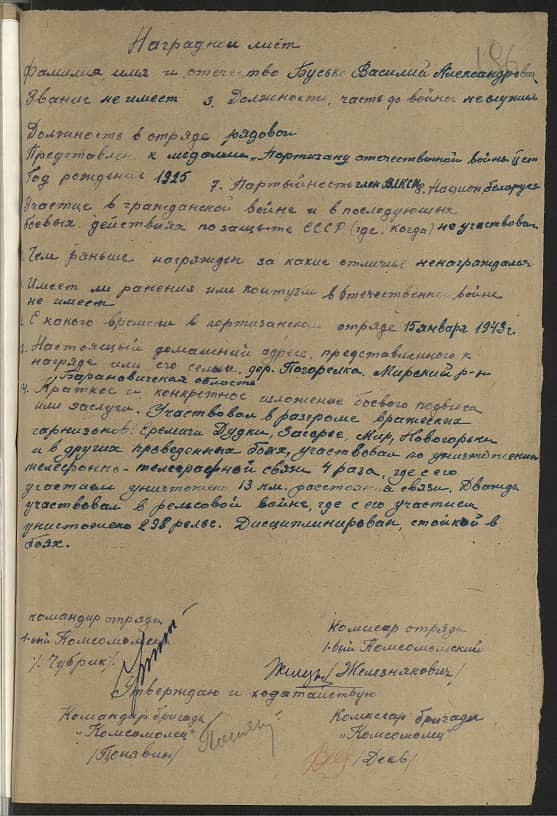 186
Наградной лист
Фамилия, имя и отчество Бусько Василий Александрович
Звание не имеет 3. Должность, часть до войны не служил
Должность в отряде рядовой
Представлен к медали „Партизану отечественной войны" II ст
Год рождения 1925 7. Партыйность член ВЛКСМ 8. Национ. белорус
Участие в гражданской войне и в последующих
боевых действиях по защите СССР (где, когда) не участвовал
Чем раньше награжден за какие отличья ненаграждался
Имеет ли ранения или контузии в Отечественной войне
не имеет
С какого времени в партизанском отряде 15 января 1943 г.
Настоящый домашний адрес, представленного к
награде или его семьи. дер. Погорелка. Мирский р-н
Барановическая область
Краткое и конкретное изложение боевого подвига
или заслуги. Участвовал в разгроме вражеских
гарнизонов: Еремичи, Дудки, Загорье, Мир, Новогорки
и в других проведенных боях, участвовал по уничтожению
телефонно-телеграфной связи 4 раза, где с его
участием уничтожено 13 км. расстояния связи. Дважды
участвовал в рельсовой войне, где с его участием
уништожено 298 рельс. Дисциплинирован, стойкой в
боях.
командир отряда комисар отряда
1-вый Комсомольский 1-вый Комсомольский
/. Чубрик/. /Железнякович/
Утверждаю и ходатайствую
Командир бригады Комиссар бригады
„Комсомолец" „Комсомолец"
/Понявин/ /Десь/